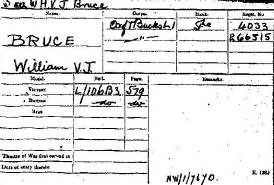 W.H.V.J. Bruce
Name. Corps. Rank. Regtl. No.
Oxf & Bucks L.I. Pte 4033
BRUCE — " — 266515
William V.J.
Medal. Roll. Page. Remarks.
Victory L/106B3 579
British do do
Star
Theatre of War first served in
Date of entry therein
NW/1/7670. K. 1380